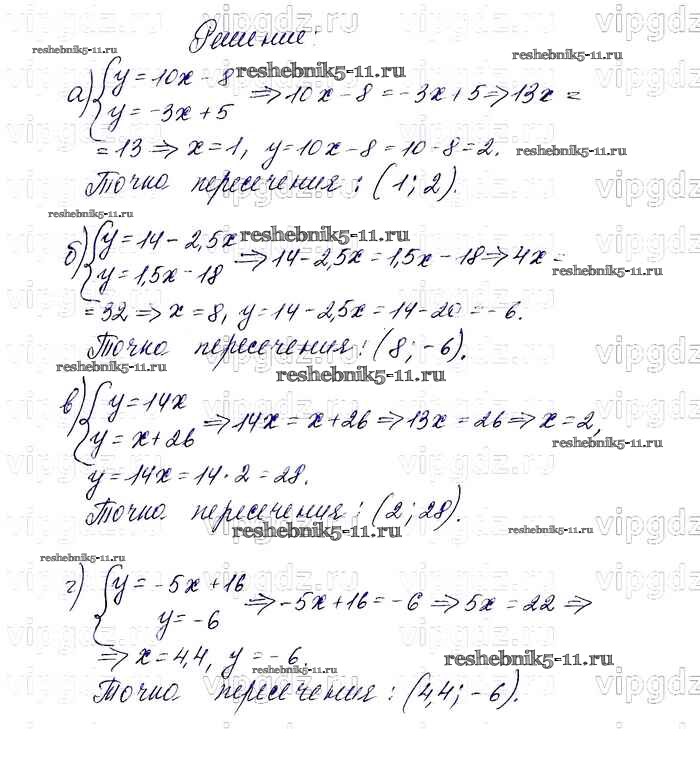 Решение:
а) { y = 10x - 8
y = -3x + 5 ⇒ 10x - 8 = -3x + 5 ⇒ 13x =
= 13 ⇒ x = 1, y = 10x - 8 = 10 - 8 = 2.
Точка пересечения: (1; 2).
б) { y = 14 - 2,5x
y = 1,5x - 18 ⇒ 14 - 2,5x = 1,5x - 18 ⇒ 4x =
= 32 ⇒ x = 8, y = 14 - 2,5x = 14 - 20 = -6.
Точка пересечения: (8; -6).
в) { y = 14x
y = x + 26 ⇒ 14x = x + 26 ⇒ 13x = 26 ⇒ x = 2,
y = 14x = 14 · 2 = 28.
Точка пересечения: (2; 28).
г) { y = -5x + 16
y = -6 ⇒ -5x + 16 = -6 ⇒ 5x = 22 ⇒
⇒ x = 4,4, y = -6.
Точка пересечения: (4,4; -6).
reshebnik5-11.ru
vipgdz.ru